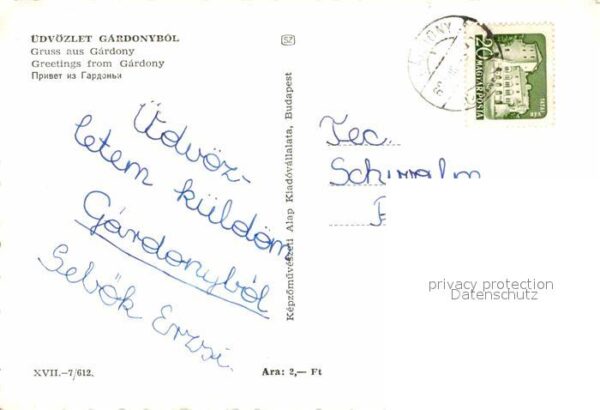 ÜDVÖZLET GÁRDONYBÓL
Gruss aus Gárdony
Greetings from Gárdony
Привет из Гардоньи
Üdvöz-
letem küldöm
Gárdonyból
Sebők Erzsi.
XVII.-7/612.
Ara: 2,— Ft
Képzőművészeti Alap Kiadóvállalata, Budapest
SZ
20
MAGYAR POSTA
Tec.
privacy protection
Datenschutz